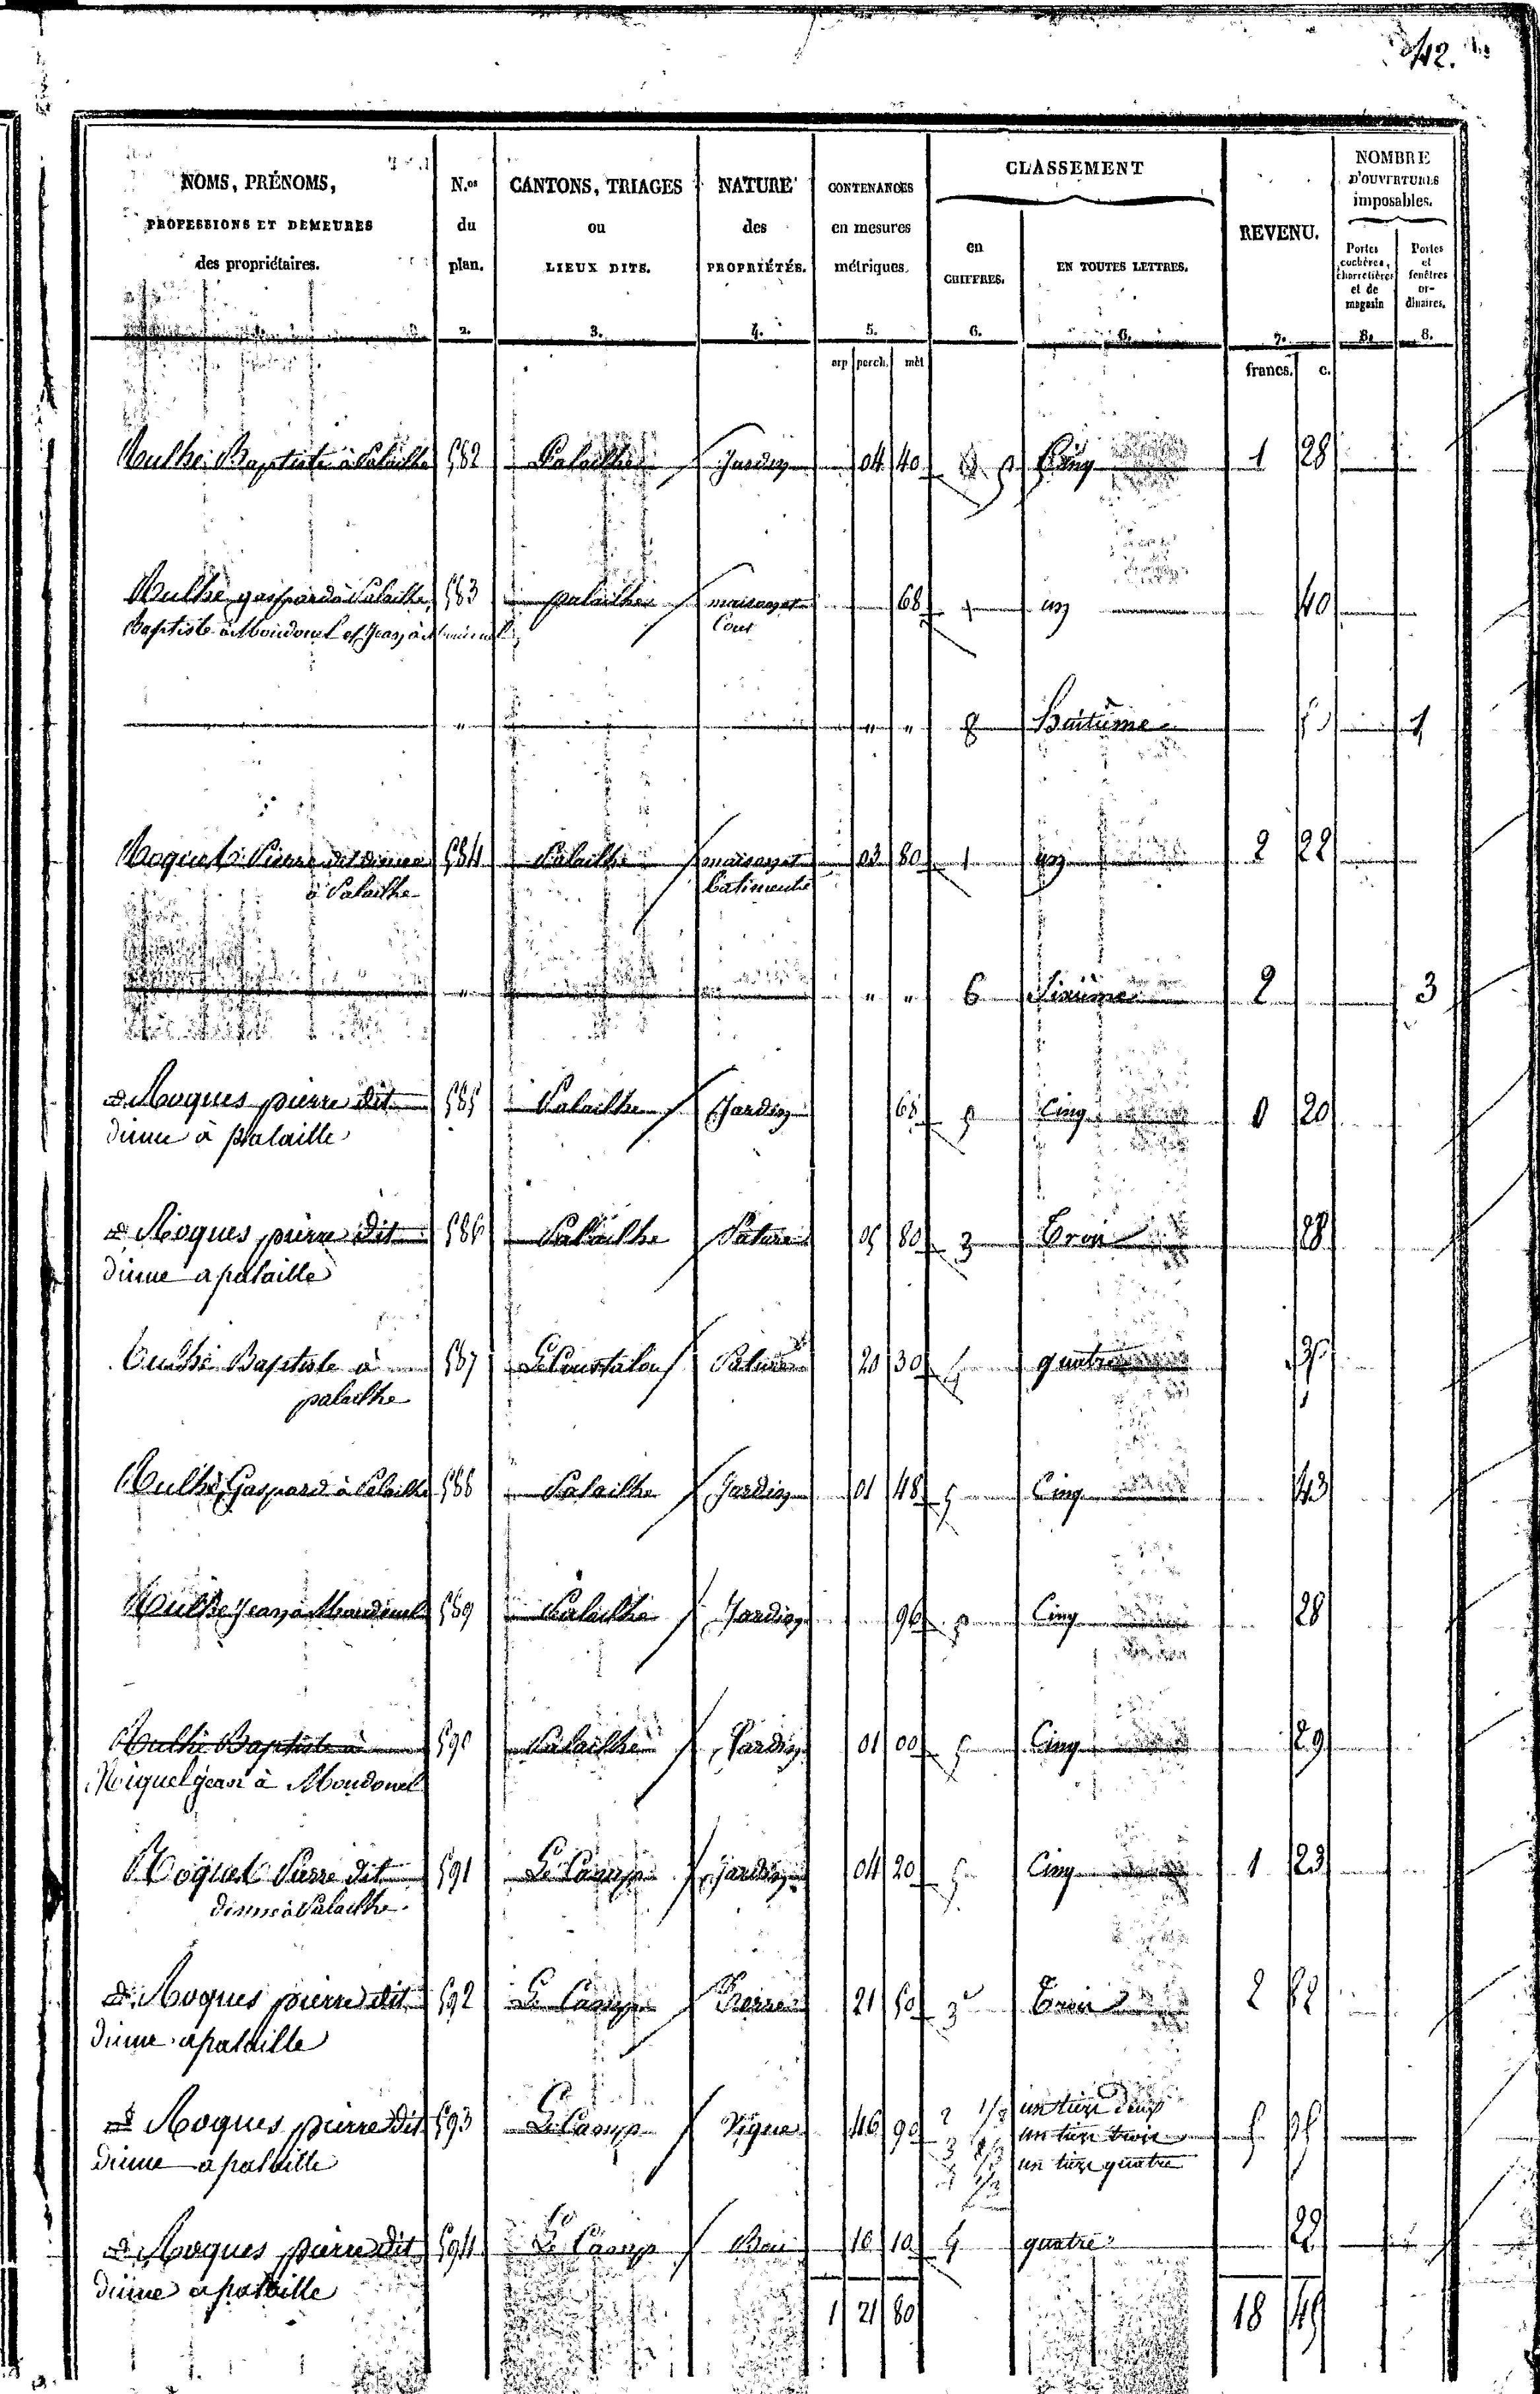 42.
NOMS, PRÉNOMS, PROFESSIONS ET DEMEURES des propriétaires.
N.os du plan. 2.
CANTONS, TRIAGES ou LIEUX DITS. 3.
NATURE des PROPRIÉTÉS. 4.
CONTENANCES en mesures métriques. 5.
CLASSEMENT
en CHIFFRES. 6.
EN TOUTES LETTRES. 6.
REVENU. 7.
NOMBRE D'OUVERTURES imposables.
Portes cochères, charretières et de magasin 8.
Portes et fenêtres ordinaires. 8.
arp perch. mèt francs. c.
Baptiste à Palailhe 582 Palailhe Jardin 04 40 5 Cinq 1 28
gaspard à Palailhe, 583 palailhe maison et 68 1 un 40
Baptiste à Moudounel et Jean à Cour
" " " 8 huitième 1
Pierre dit 584 Palailhe maison et 03 80 1 un 2 22
à Palailhe batiments
" " " 6 Sixième 2 3
Roques pierre dit 585 Palailhe Jardin 68 5 Cinq 0 20
à palaille
Roques pierre dit 586 Palailhe Pature 05 80 3 Trois 28
a palaille
Baptiste à 587 Pature 20 30 4 quatre
palailhe
Gaspard à Palailhe 588 Palailhe Jardin 01 48 5 Cinq 43
Jean à Moudounel 589 Palailhe Jardin 96 5 Cinq 28
Baptiste à 590 Palailhe Jardin 01 00 5 Cinq 29
Miquel jean à Moudounel
Pierre dit 591 Le Camp Jardin 04 20 5 Cinq 1 23
à Palailhe
Roques pierre dit 592 Le Camp Terre 21 50 3 Trois 2
a palaille
Roques pierre dit 593 Le Camp Vigne 46 90 2 1/3 un tiers deux
3 1/3 un tiers trois
a palaille 4 1/3 un tiers quatre
Roques pierre dit 594 Le Camp Bois 10 10 4 quatre
a palaille
1 21 80 18 45